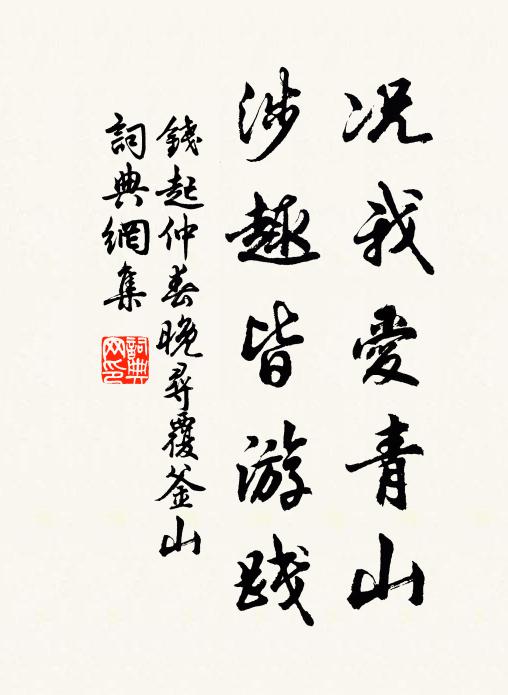 况我愛青山
涉趣皆游踐
錢起仲春晚尋覆釜山
詞典網集
詞典網印